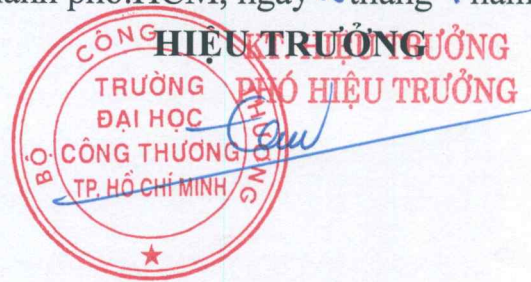 phố.HCM, ngày tháng năm
HIỆU TRƯỞNG
KT. HIỆU TRƯỞNG
PHÓ HIỆU TRƯỞNG
BỘ CÔNG THƯƠNG
TRƯỜNG
ĐẠI HỌC
CÔNG THƯƠNG
TP. HỒ CHÍ MINH